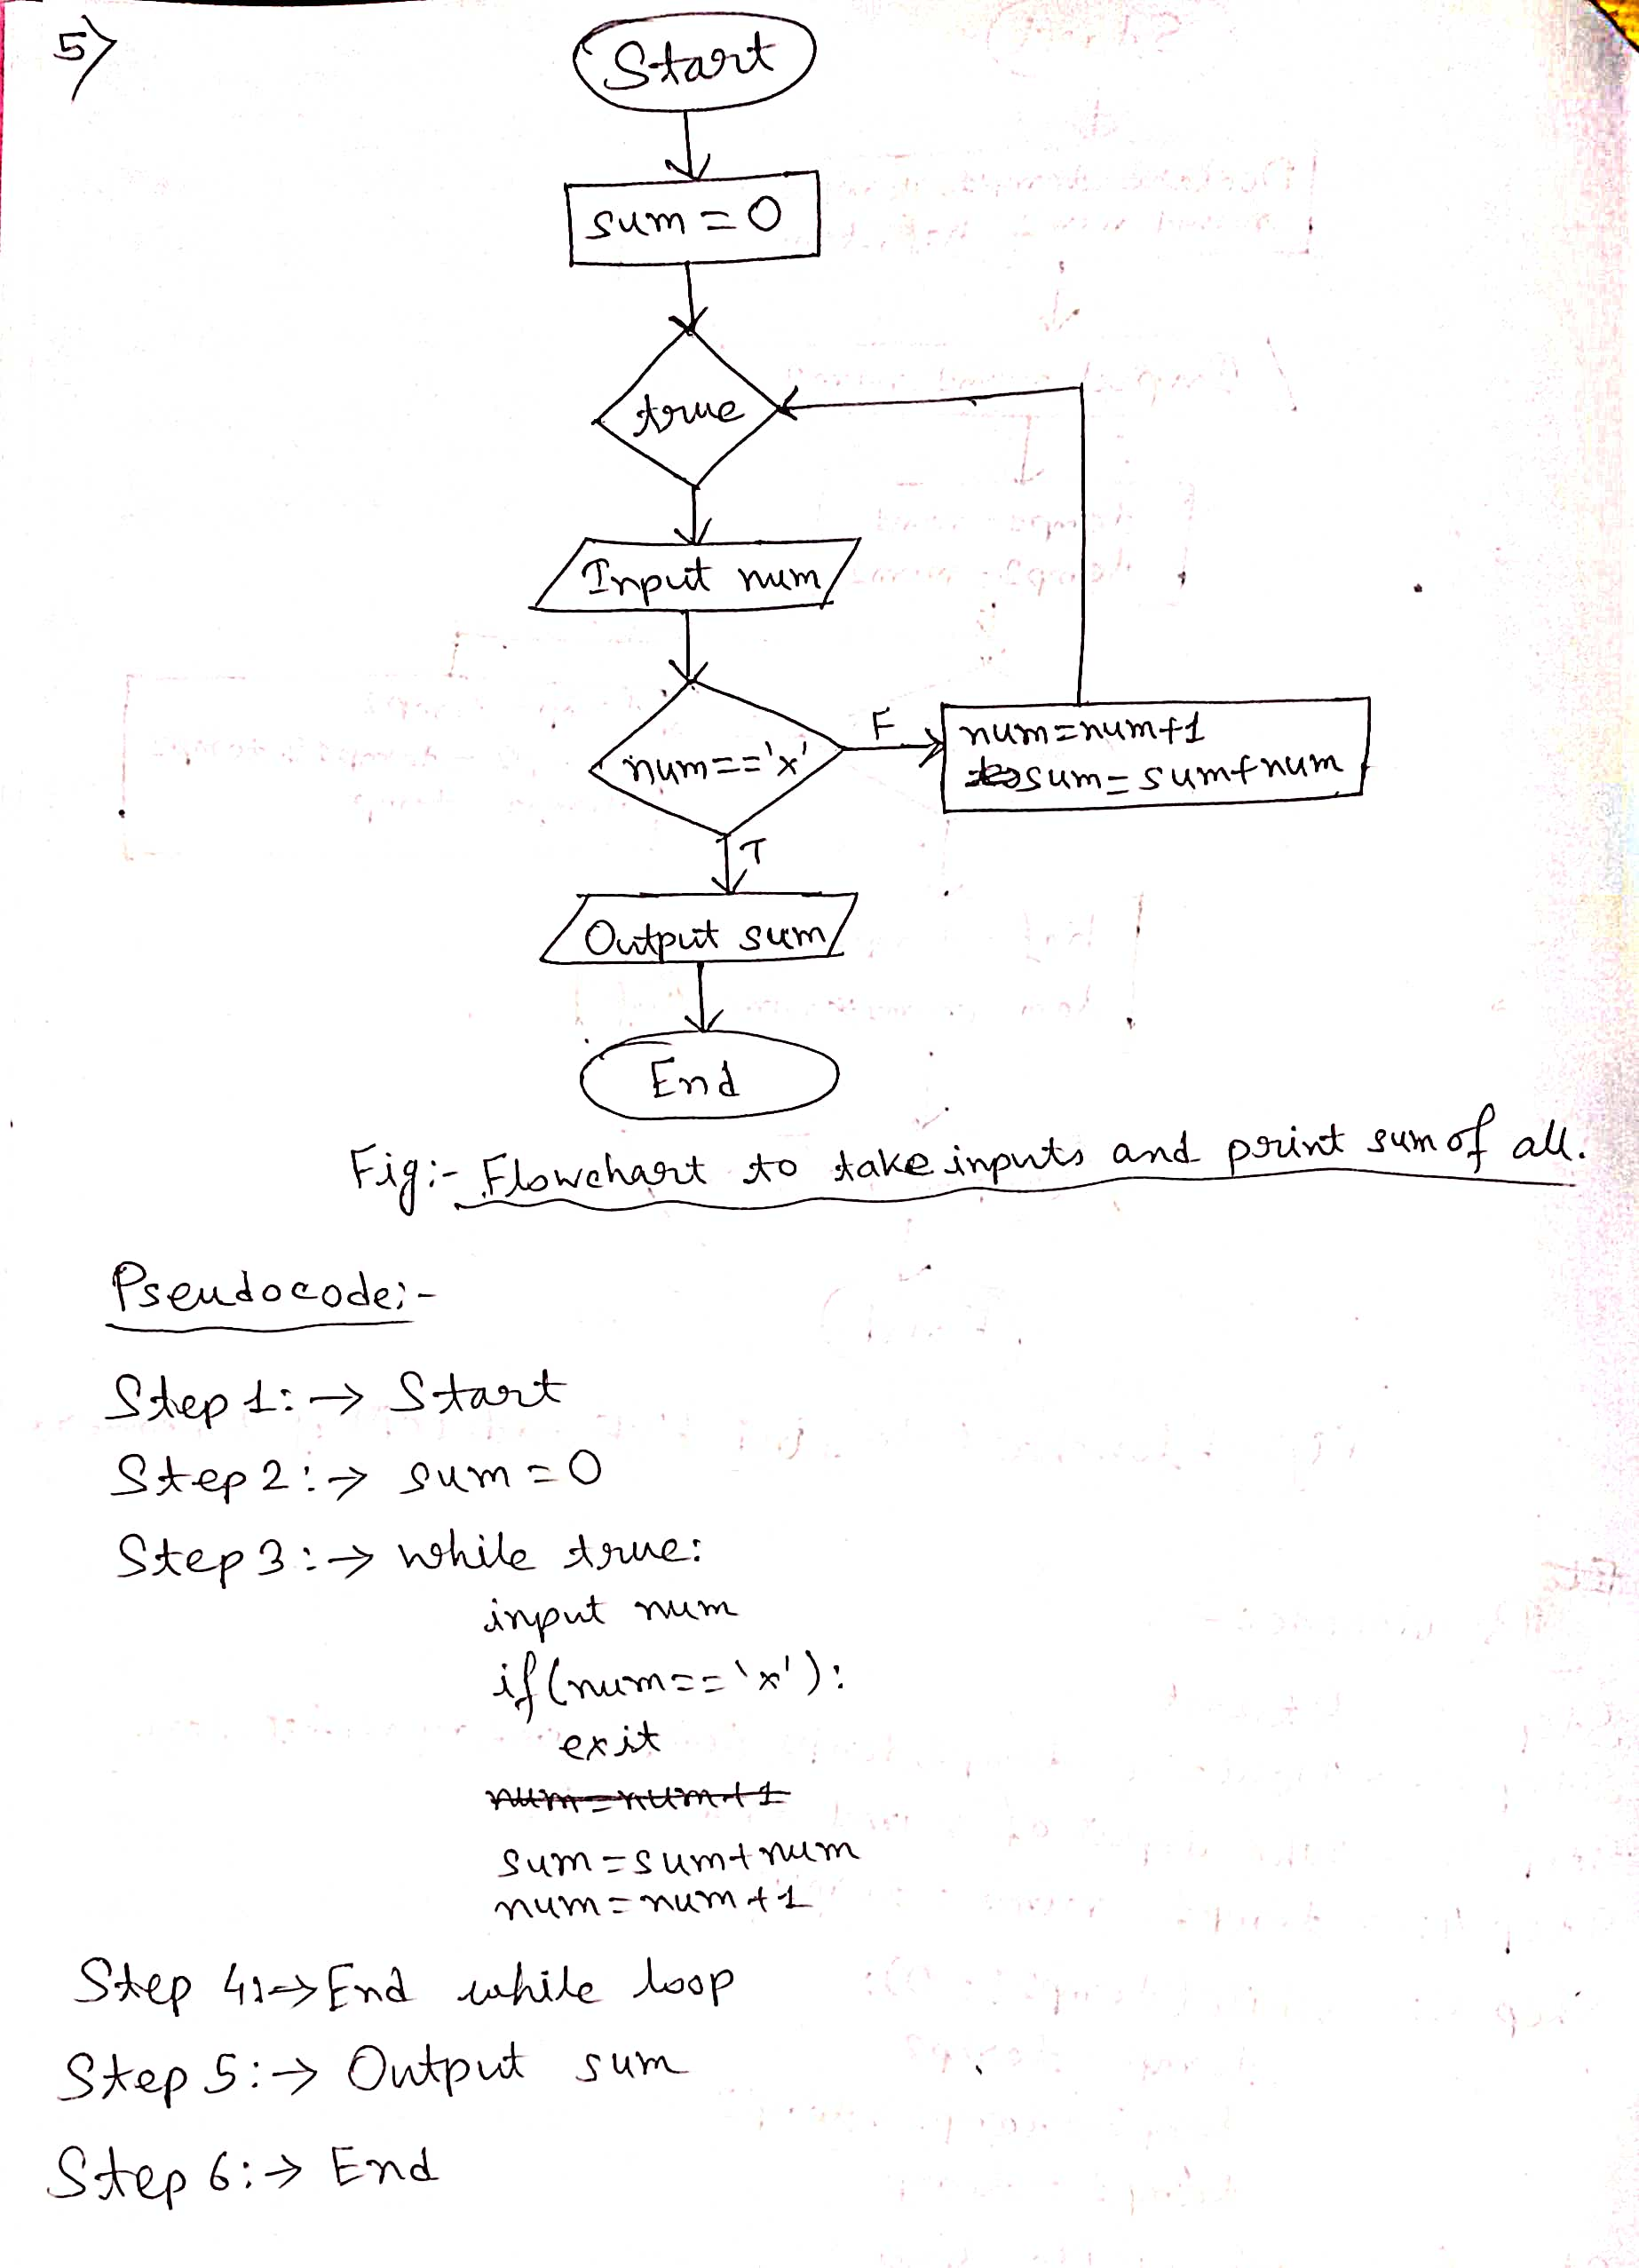 5)
Start
sum = 0
true
Input num
num=='x'
F
num=num+1
sum=sum+num
T
Output sum
End
Fig:- Flowchart to take inputs and print sum of all.
Pseudocode:-
Step 1:→ Start
Step 2:→ sum = 0
Step 3:→ while true:
input num
if(num=='x'):
exit
num=num+1
sum=sum+num
num=num+1
Step 4:→ End while loop
Step 5:→ Output sum
Step 6:→ End